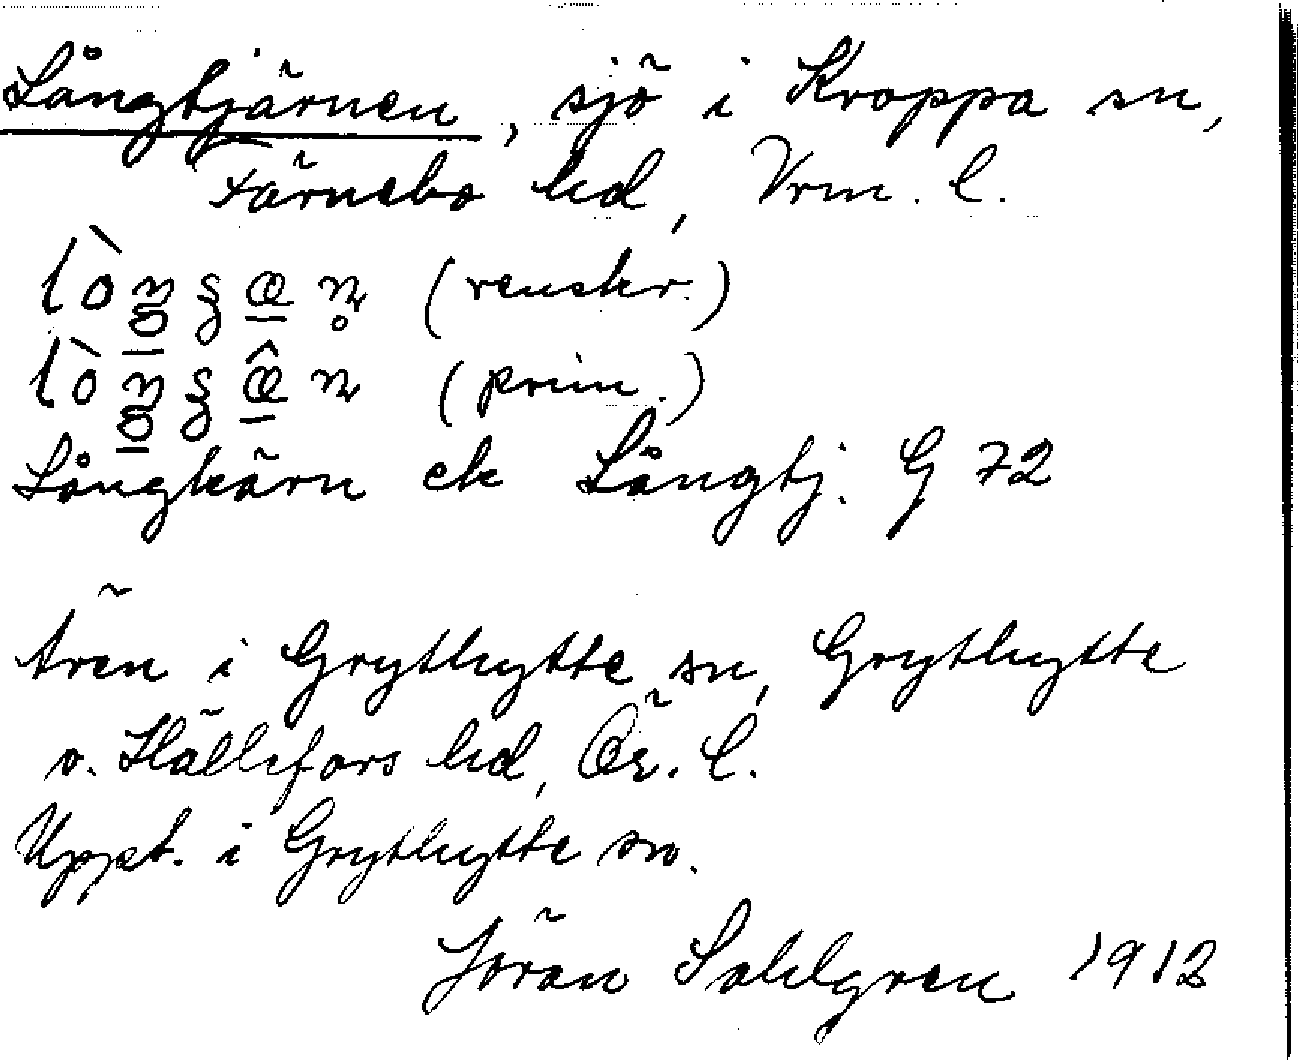 Långtjärnen, sjö i Kroppa sn,
Färnebo hd, Vrm. l.
(renskr.)
(prim.)
Långkärn ek Långtj. G 72
Ären i Grythytte sn, Grythytte
o. Hällefors hd, Ör. l.
Uppt. i Grythytte sn.
Jöran Sahlgren 1912